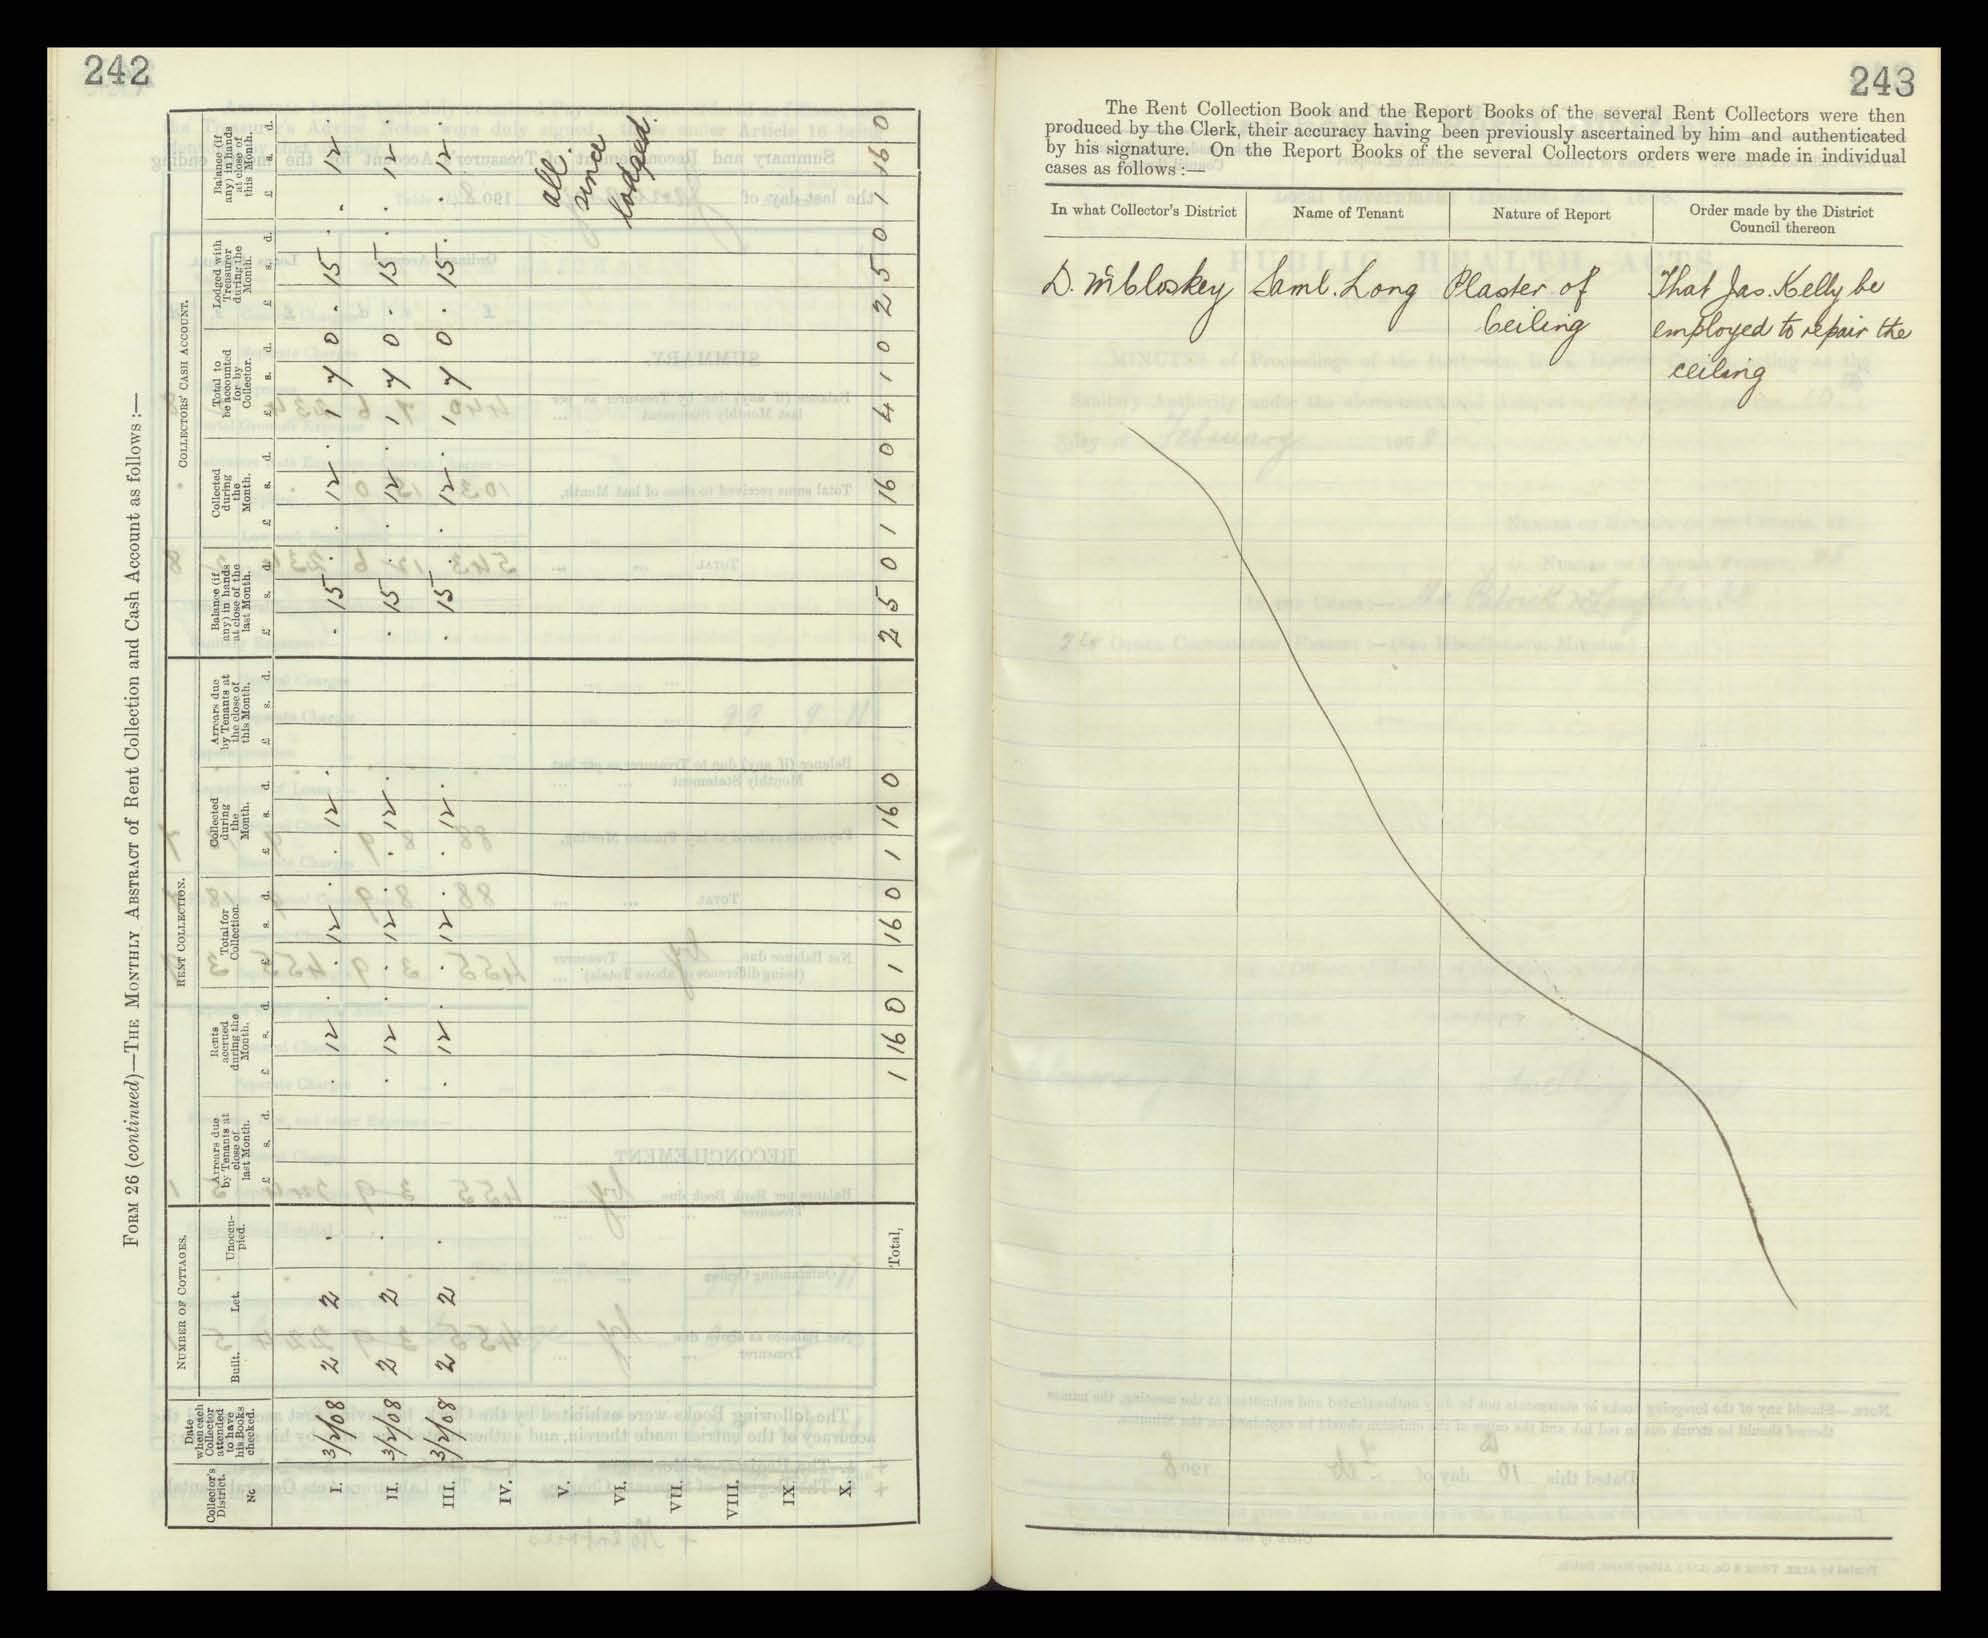 242
FORM 26 (continued)—THE MONTHLY ABSTRACT of Rent Collection and Cash Account as follows :—
NUMBER OF COTTAGES.
RENT COLLECTION.
COLLECTORS' CASH ACCOUNT.
Collector's District. No
Date when each Collector attended to have his Books checked.
Built.
Let.
Unoccu-pied.
Arrears due by Tenants at close of last Month.
Rents accrued during the Month.
Total for Collection.
Collected during the Month.
Arrears due by Tenants at the close of this Month.
Balance (if any) in hands at close of the last Month.
Collected during the Month.
Total to be accounted for by Collector.
Lodged with Treasurer during the Month.
Balance (if any) in hands at close of this Month.
£ s. d. £ s. d. £ s. d. £ s. d. £ s. d. £ s. d. £ s. d. £ s. d. £ s. d. £ s. d.
I. 3/2/08 2 2 . . 12 . . 12 . . 12 . . 15 . . 12 . 1 7 0 . 15 . . 12 .
II. 3/2/08 2 2 . . 12 . . 12 . . 12 . . 15 . . 12 . 1 7 0 . 15 . . 12 .
III. 3/2/08 2 2 . . 12 . . 12 . . 12 . . 15 . . 12 . 1 7 0 . 15 . . 12 .
IV.
V. all.
VI. since
lodged.
VII.
VIII.
IX.
X.
Total, 1 16 0 1 16 0 1 16 0 2 5 0 1 16 0 4 1 0 2 5 0 1 16 0
243
The Rent Collection Book and the Report Books of the several Rent Collectors were then
produced by the Clerk, their accuracy having been previously ascertained by him and authenticated
by his signature. On the Report Books of the several Collectors orders were made in individual
cases as follows :—
In what Collector's District
Name of Tenant
Nature of Report
Order made by the District
Council thereon
D. McCloskey Saml. Long Plaster of That Jas. Kelly be
Ceiling employed to repair the
ceiling